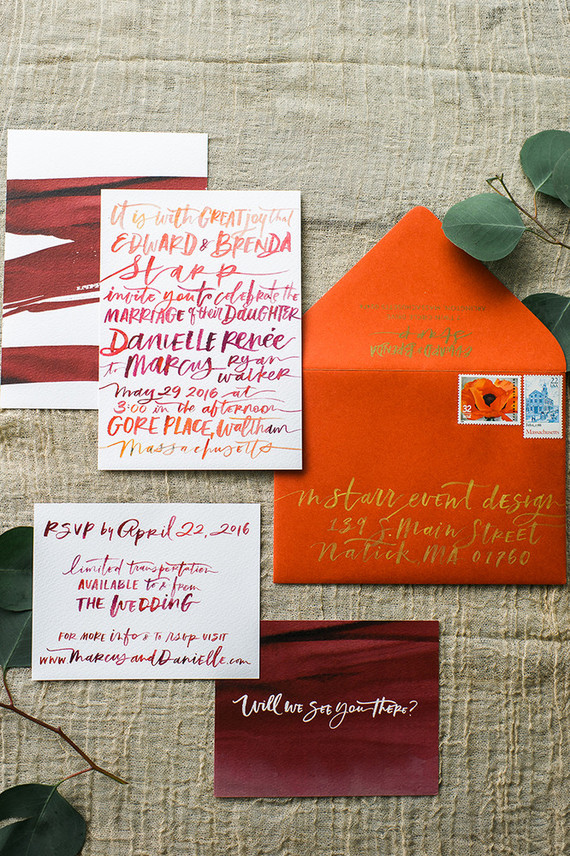 It is with GREAT joy that
EDWARD & BRENDA
Starr
invite you to celebrate the
MARRIAGE of their DAUGHTER
DANIELLE RENÉE
to MARCUS ryan
walker
May 29 2016 at
3:00 in the afternoon
GORE PLACE, Waltham
Massachusetts
32
USA
22
USA
Massachusetts
m starr event design
139 S. Main Street
Natick, MA 01760
RSVP by April 22, 2016
limited transportation
AVAILABLE to & from
THE WEDDING
FOR MORE info & to rsvp VISIT
www.MarcusandDanielle.com
Will we see you there?